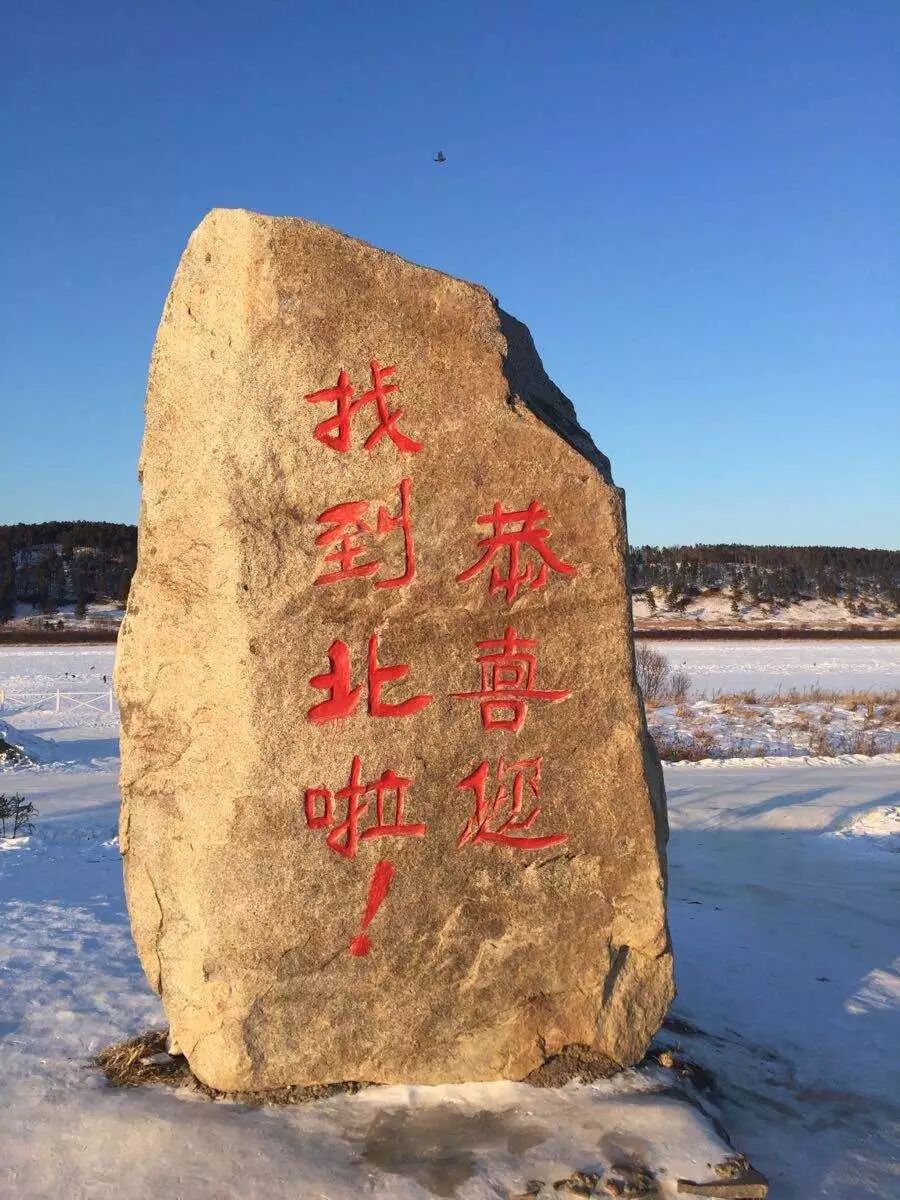 恭喜您
找到北啦！